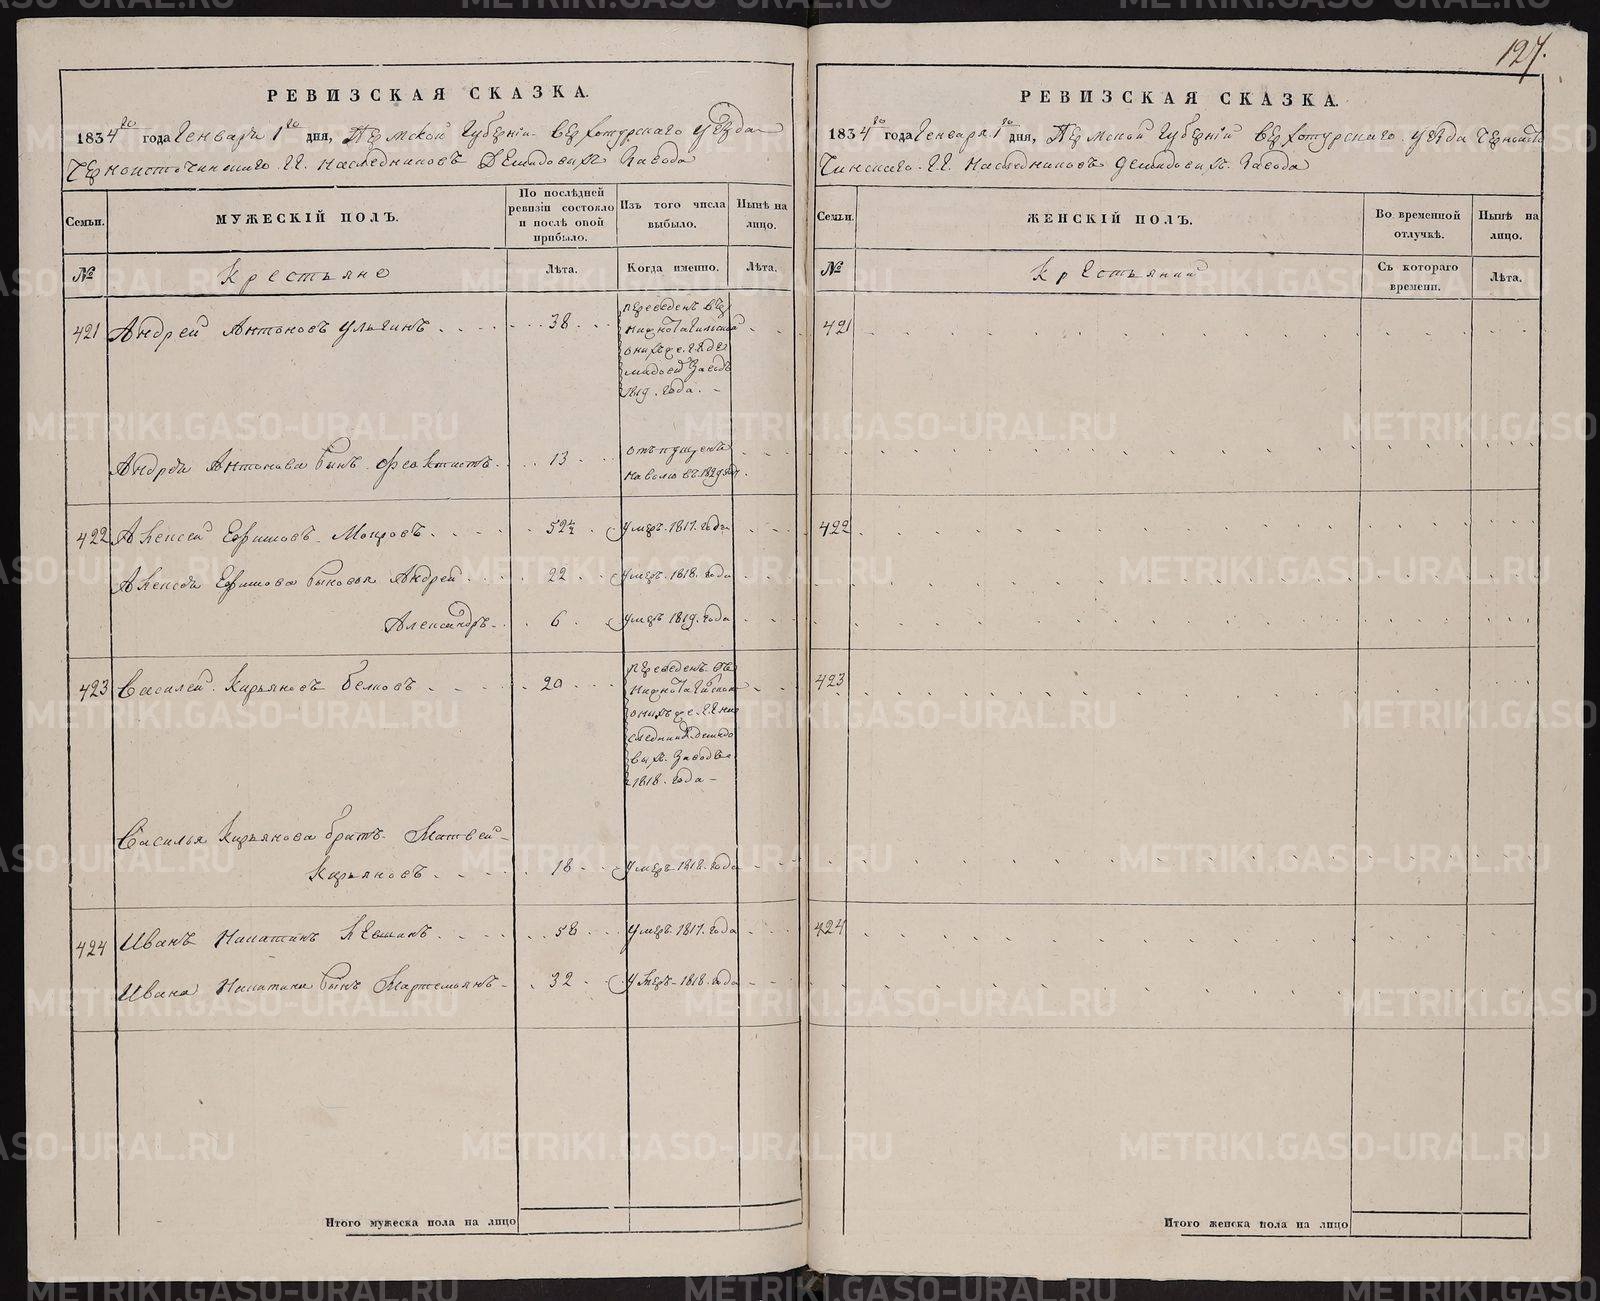 127.
РЕВИЗСКАЯ СКАЗКА.
1834го года Генваря 1го дня, Пермской Губернiи Верхотурскаго уѣзда
Черноисточинскаго Г.Г. наследниковъ Демидовыхъ Завода
Семьи. МУЖЕСКIЙ ПОЛЪ. По послѣдней ревизiи состояло и послѣ оной прибыло. Изъ того числа выбыло. Нынѣ на лицо.
№ Крестьяне Лѣта. Когда именно. Лѣта.
421 Андрей Антоновъ 38 переведенъ въ
1819. года.
Андрея Антонова сынъ Феоктистъ 13 отъпущенъ
на волю въ 1829
422 Алексей Ефимовъ Мокровъ 52 умеръ 1817. года
Алексея Ефимова сыновья Андрей 22 умеръ 1818. года
Александръ 6 умеръ 1819. года
423 Василей Кирьяновъ Белковъ 20 переведенъ въ
онихъ же Г.Г. на
следник. демидо
выхъ. Заводъ
1818. года
Василья Кирьянова братъ Матвей
Кирьяновъ 18 умеръ 1818. года
424 Иванъ Ипатинъ 58 умеръ 1817. года
Ивана Ипатина сынъ Мартемьянъ 32 умеръ 1818. года
Итого мужеска пола на лицо
РЕВИЗСКАЯ СКАЗКА.
1834го года Генваря 1го дня, Пермской Губернiи Верхотурскаго уѣзда Черноисто
чинскаго Г.Г. Наследниковъ демидовыхъ Завода
Семьи. ЖЕНСКIЙ ПОЛЪ. Во временной отлучкѣ. Нынѣ на лицо.
№ Крестьянки Съ котораго времени. Лѣта.
421
422
423
424
Итого женска пола на лицо
METRIKI.GASO-URAL.RU